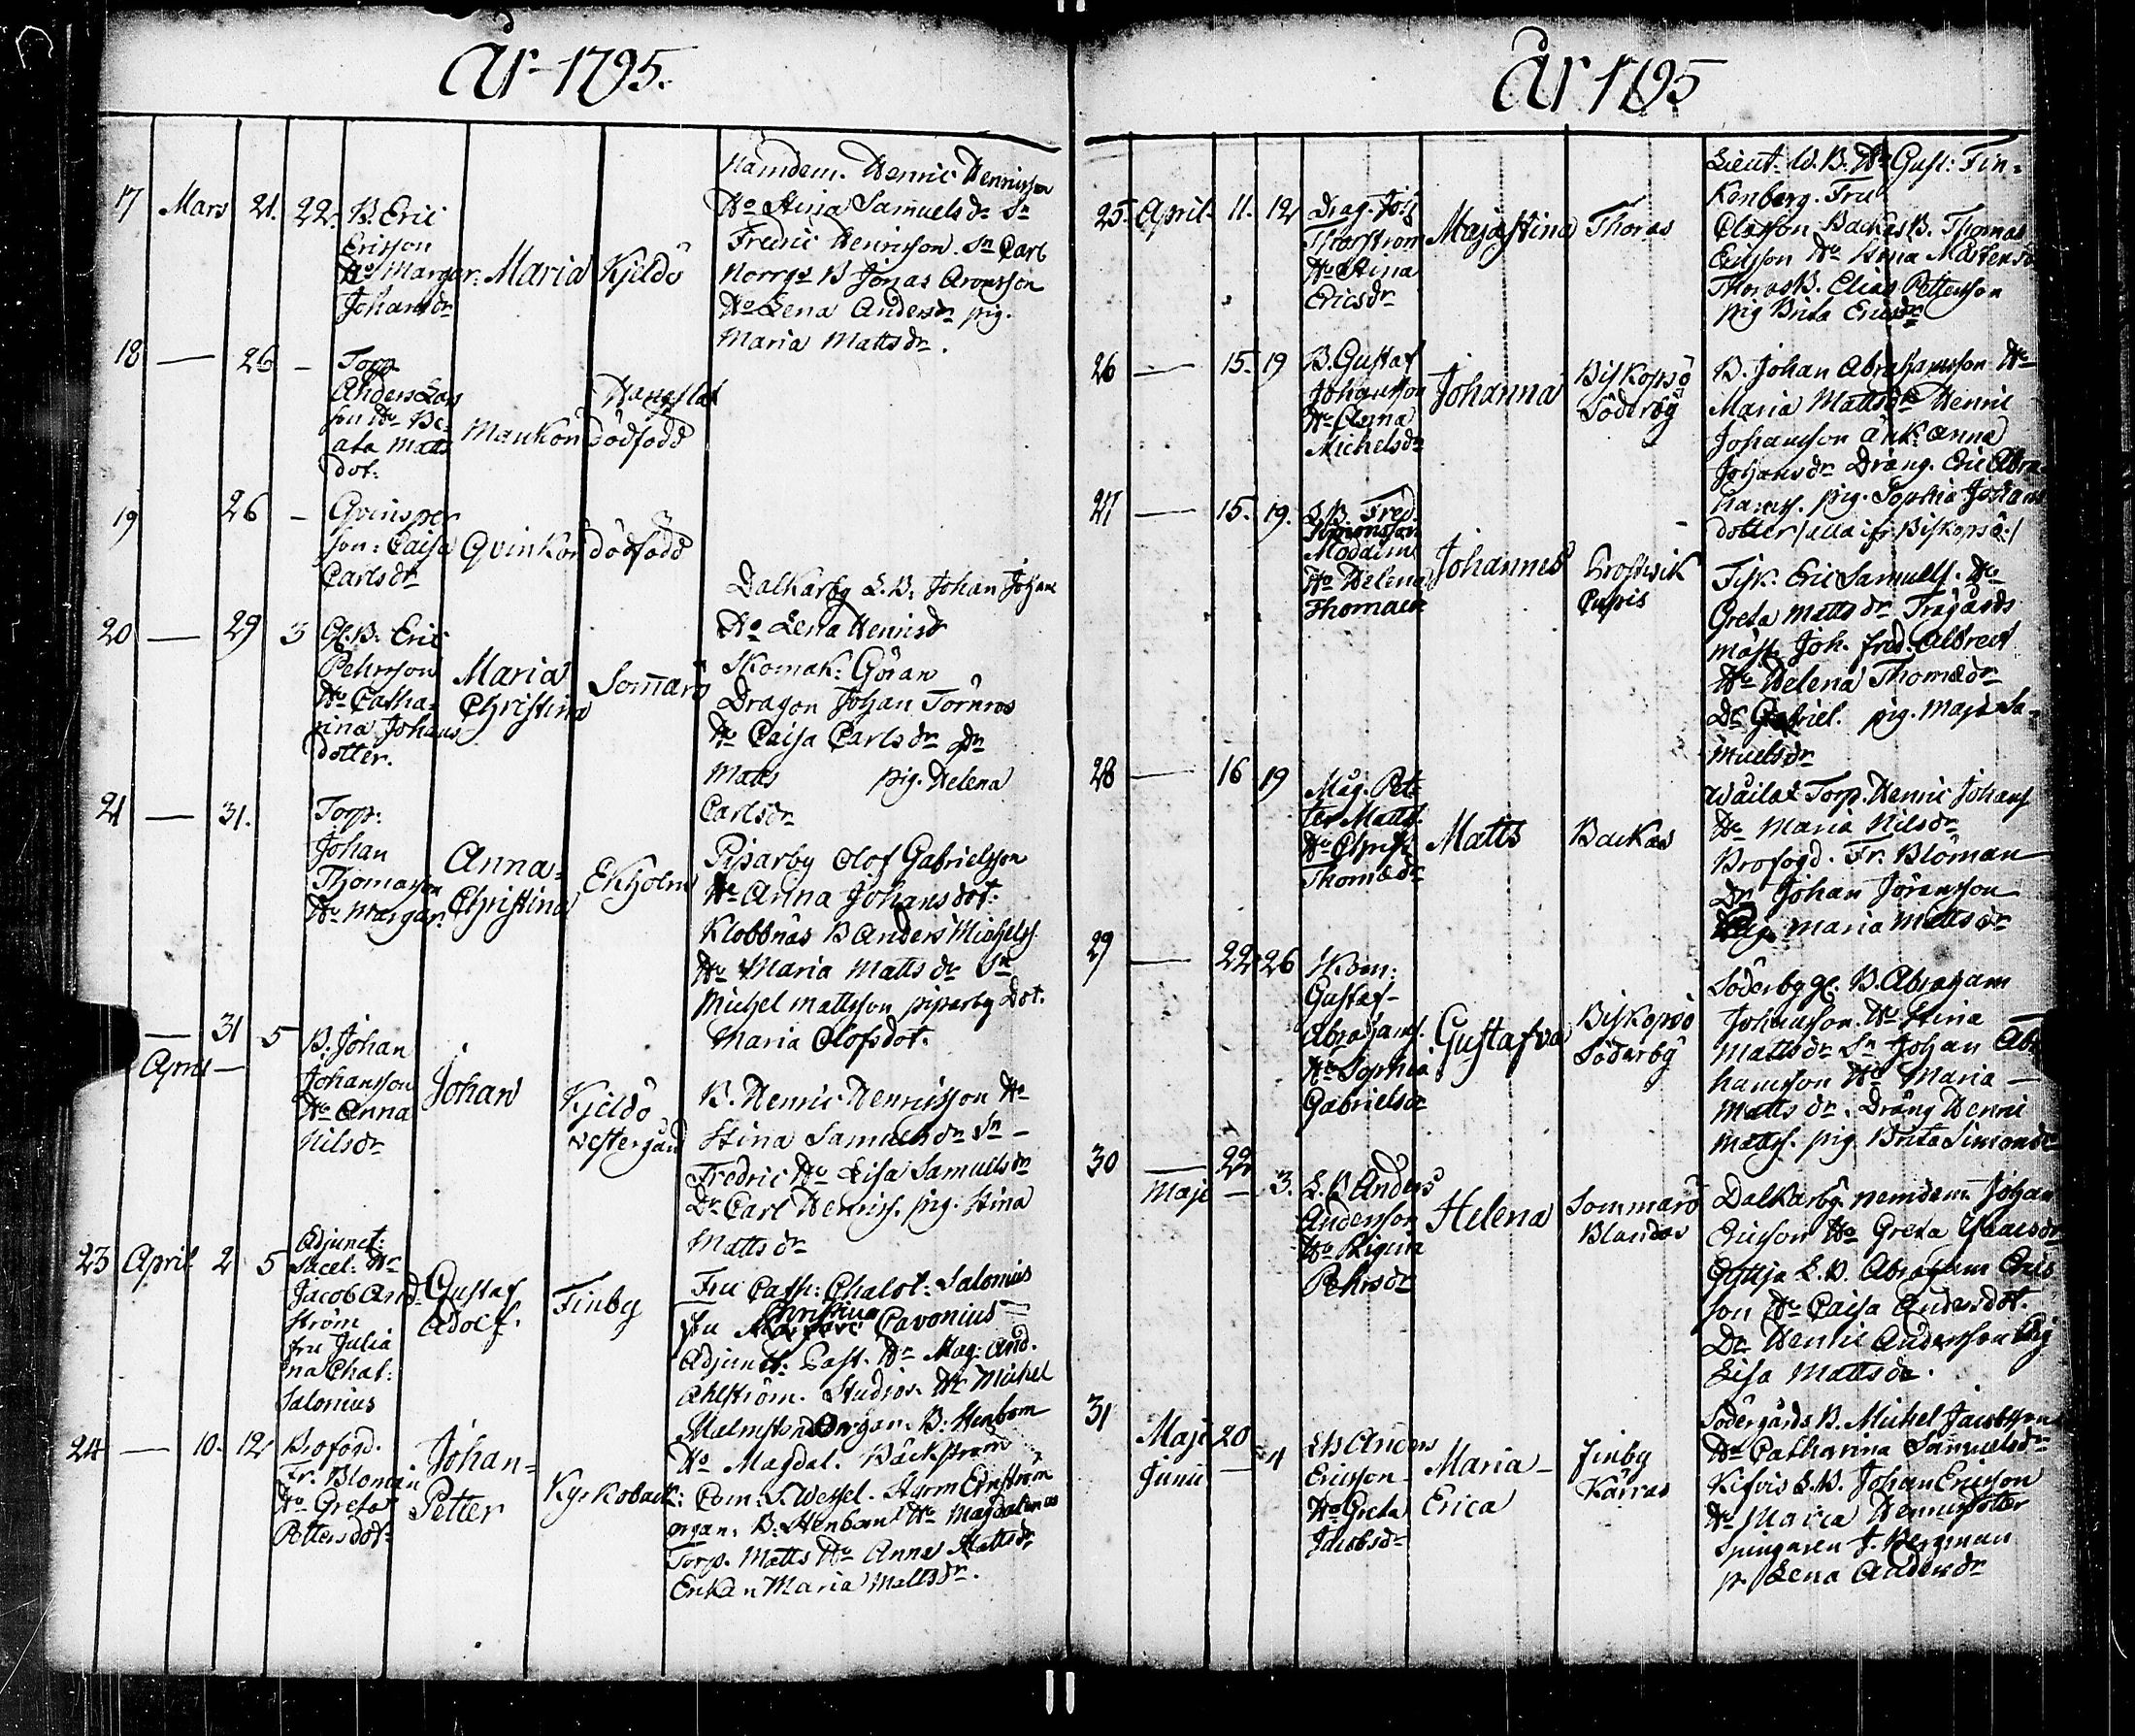 år 1795.
17 Mars 21. 22. B. Eric
Ericsson
Ho Margar: Maria Kjeldö
Johansdr
Nämdem. Henric Henricsson
Ho Stina Samuelsdr Sn
Fredric Henricsson. Sn Carl
Norrgs B Jonas Aronsson
Ho Lena Andersdr pig.
Maria Mattsdr.
18 — 26 – Torp
Anders Lars
son Ho Be-
ata Matts
dot.
Mankön dödfödd
19 26 –
son: Caisa Qvinkön dödfödd
Carlsdr
20 — 29 3 Gl. B. Eric
Pehrsson
Ho Catha-
rina Johans
dotter.
Maria
Christina
Sommarö
Dalkarby L. B. Johan Johans
Ho Lena Henricsdr
Skomak: Göran
Dragon Johan Törnros
Ho Caisa Carlsdr Dr
Matts pig. Helena
Carlsdr
21 — 31. Torp:
Johan
Thomasson
Ho Margar.
Anna-
Christina
Ekholm
Piparby Olof Gabrielsson
Ho Anna Johansdot:
Klobbnäs B Anders Michelss.
Ho Maria Mattsdr Sn
Michel Mattsson piparby Dot.
Maria Olofsdot.
— 31 5 B. Johan
April —
Johansson
Ho Anna
Nilsdr
Johan
Kjeldö
vestergård
B. Henric Henricsson Ho
Stina Samuelsdr Sn –
Fredric Ho Lisa Samuelsdr
Dr Carl Henricss. pig. Stina
Mattsdr
23 April 2 5 Adjunct:
Sacel. Hr
Jacob And-
ström
fru Julia
na Chal:
Salonius
Gustaf
Adolf.
Finby
Fru Cath: Chalot: Salonius
fru Christina Pavonius —
Adjunct. Past. Hr Mag: And.
Ahlström. Studios. Hr Michel
Malmsten Organ. B: Stenbom
24 — 10. 12 Brofogd.
Fr. Bloman
Ho Greta
Pettersdot.
Johan-
Petter
Kyrkoback:
Ho Magdal. Bäckström
Com: S. Wessel. Styrm Ernström
organ. B. Stenbom Ho Magdalena
Torp. Matts Ho Anna Mattsdr
Enkan Maria Mattsdr.
År 1795
25. April. 11. 12 Drag. Joh
Thorström
Ho Stina
Ericsdr
Majastina Thoras
Lieut. W. B. Hr Gust: Fin-
kenberg. Fru
Olasson Backas B. Thomas
Ericsson Ho Stina Mårtensdr
Thoras B. Elias Pettersson
pig Brita Ericsdr
26 — 15. 19 B. Gustaf
Johansson
Ho Anna
Michelsdr
Johanna
Biskopsö
Söderby
B. Johan Abrahamsson Ho
Maria Mattsdr Henric
Johansson änk: Anna
Johansdr Dräng. Eric Abra-
hamss. pig. Sophia Johans
dotter /alla ifr. Biskopsö./
27 — 15. 19. L. B. Fred.
Simonsson
Ho Helena
Thomaedr
Johannes
Prostvik
Cupis
Fisk. Eric Samuelss. Ho
Greta Mattsdr Trägårds
mäst. Joh. fred. Albrect
Ho Helena Thomædr
Dr Gabriel. pig. Maja Sa-
muelsdr
28 — 16 19 Mag. Pet-
ter Matts.
Ho Christ.
Thomædr
Matts Backas
Torp. Henric Johanss
Ho Maria Nilsdr
Brofogd. Fr. Bloman
Dr Johan Jöransson
Pig. Maria Mattsdr
29 — 22 26 Skom:
Gustaf-
Abrahams.
Ho Sophia
Gabrielsdr
Gustafva
Biskopsö
Söderby
Söderby gl. B. Abraham
Johansson. Ho Stina
Mattsdr Sn Johan Abra
hamsson Ho Maria —
Mattsdr. Dräng Henric
Mattss. pig. Brita Simonsdr
30 — 22
Maji — 3. L. B Anders
Andersson
Ho Regina
Pehrsdr
Helena
Sommarö
Blandas
Dalkarby. nemdem. Johan
Ericsson Ho Greta Isaacsdr
L. B. Abraham Erics
son Ho Caisa Andersdot.
Dr Henric Andersson Pig
Lisa Mattsdr.
31 Maji 20
Junii — 4 LB Anders
Ericsson
Ho Greta
Jacobsdr
Maria-
Erica
Finby
Kärras
Södergårds B. Michel Jacobsson
Ho Catharina Samuelsdr
L. B. Johan Ericsson
Ho Maria Henricsdotter
J. Bergman
p. Lena Andersdr